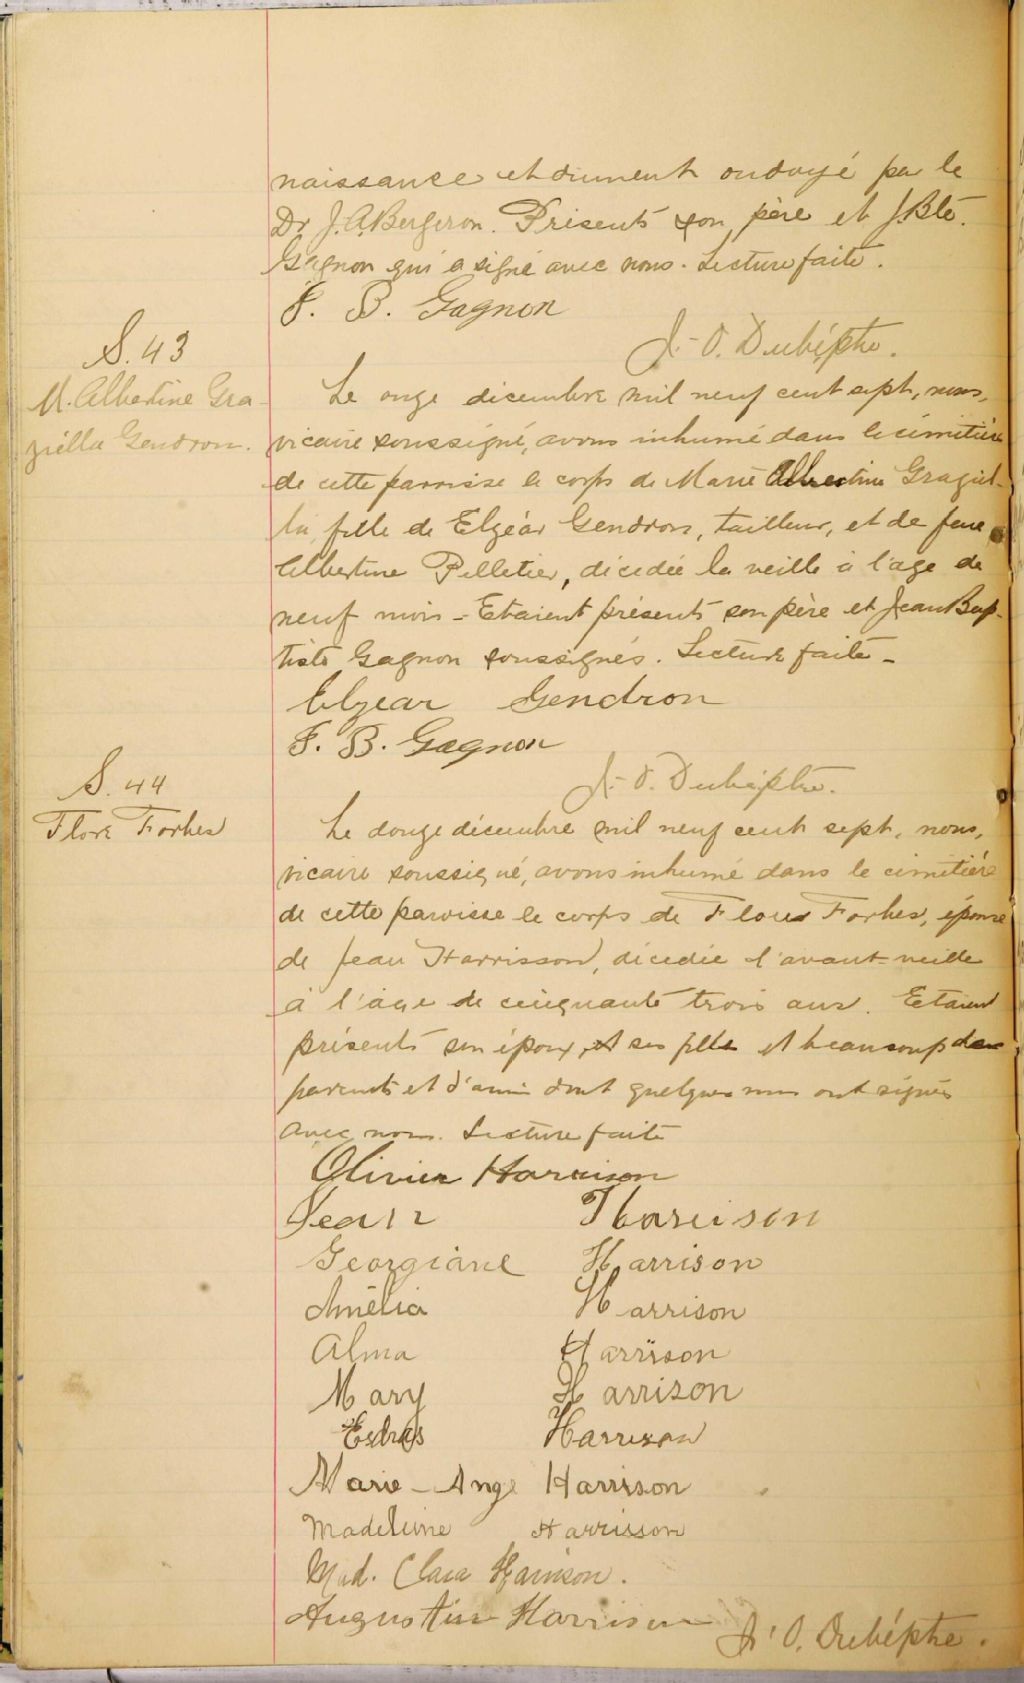 naissance et dûment ondoyé par le
Dr J. A. Bergeron. Présents son père et J. Bte.
Gagnon qui a signé avec nous. Lecture faite.
J. B. Gagnon
J.-O. Dubéptre.
S. 43
M. Albertine Gra-
ziella Gendron.
Le onze décembre mil neuf cent sept, nous,
vicaire soussigné, avons inhumé dans le cimitière
de cette paroisse le corps de Marie Albertine Graziel-
la, fille de Elzéar Gendron, tailleur, et de feue
Albertine Pelletier, décédée la veille à l'age de
neuf mois - Etaient présents son père et Jean Bap-
tiste Gagnon soussignés. Lecture faite -
Elzear Gendron
J. B. Gagnon
J.-O. Dubéptre.
S. 44
Flore Forbes
Le douze décembre mil neuf cent sept, nous,
vicaire soussigné, avons inhumé dans le cimitière
de cette paroisse le corps de Flore Forbes, épouse
de Jean Harrisson, décédée l'avant-veille
à l'âge de cinquante trois ans. Etaient
présents son époux, et ses filles et beaucoup de
parents et d'amis dont quelques uns ont signés
avec nous. Lecture faite
Olivier Harrison
Jean Harrison
Georgiane Harrison
Amélia Harrison
Alma Harrison
Mary Harrison
Esdras Harrison
Marie-Ange Harrison
Madeleine Harrisson
Mad. Clara Harrison.
Augustin Harrison
J. O. Dubéptre.